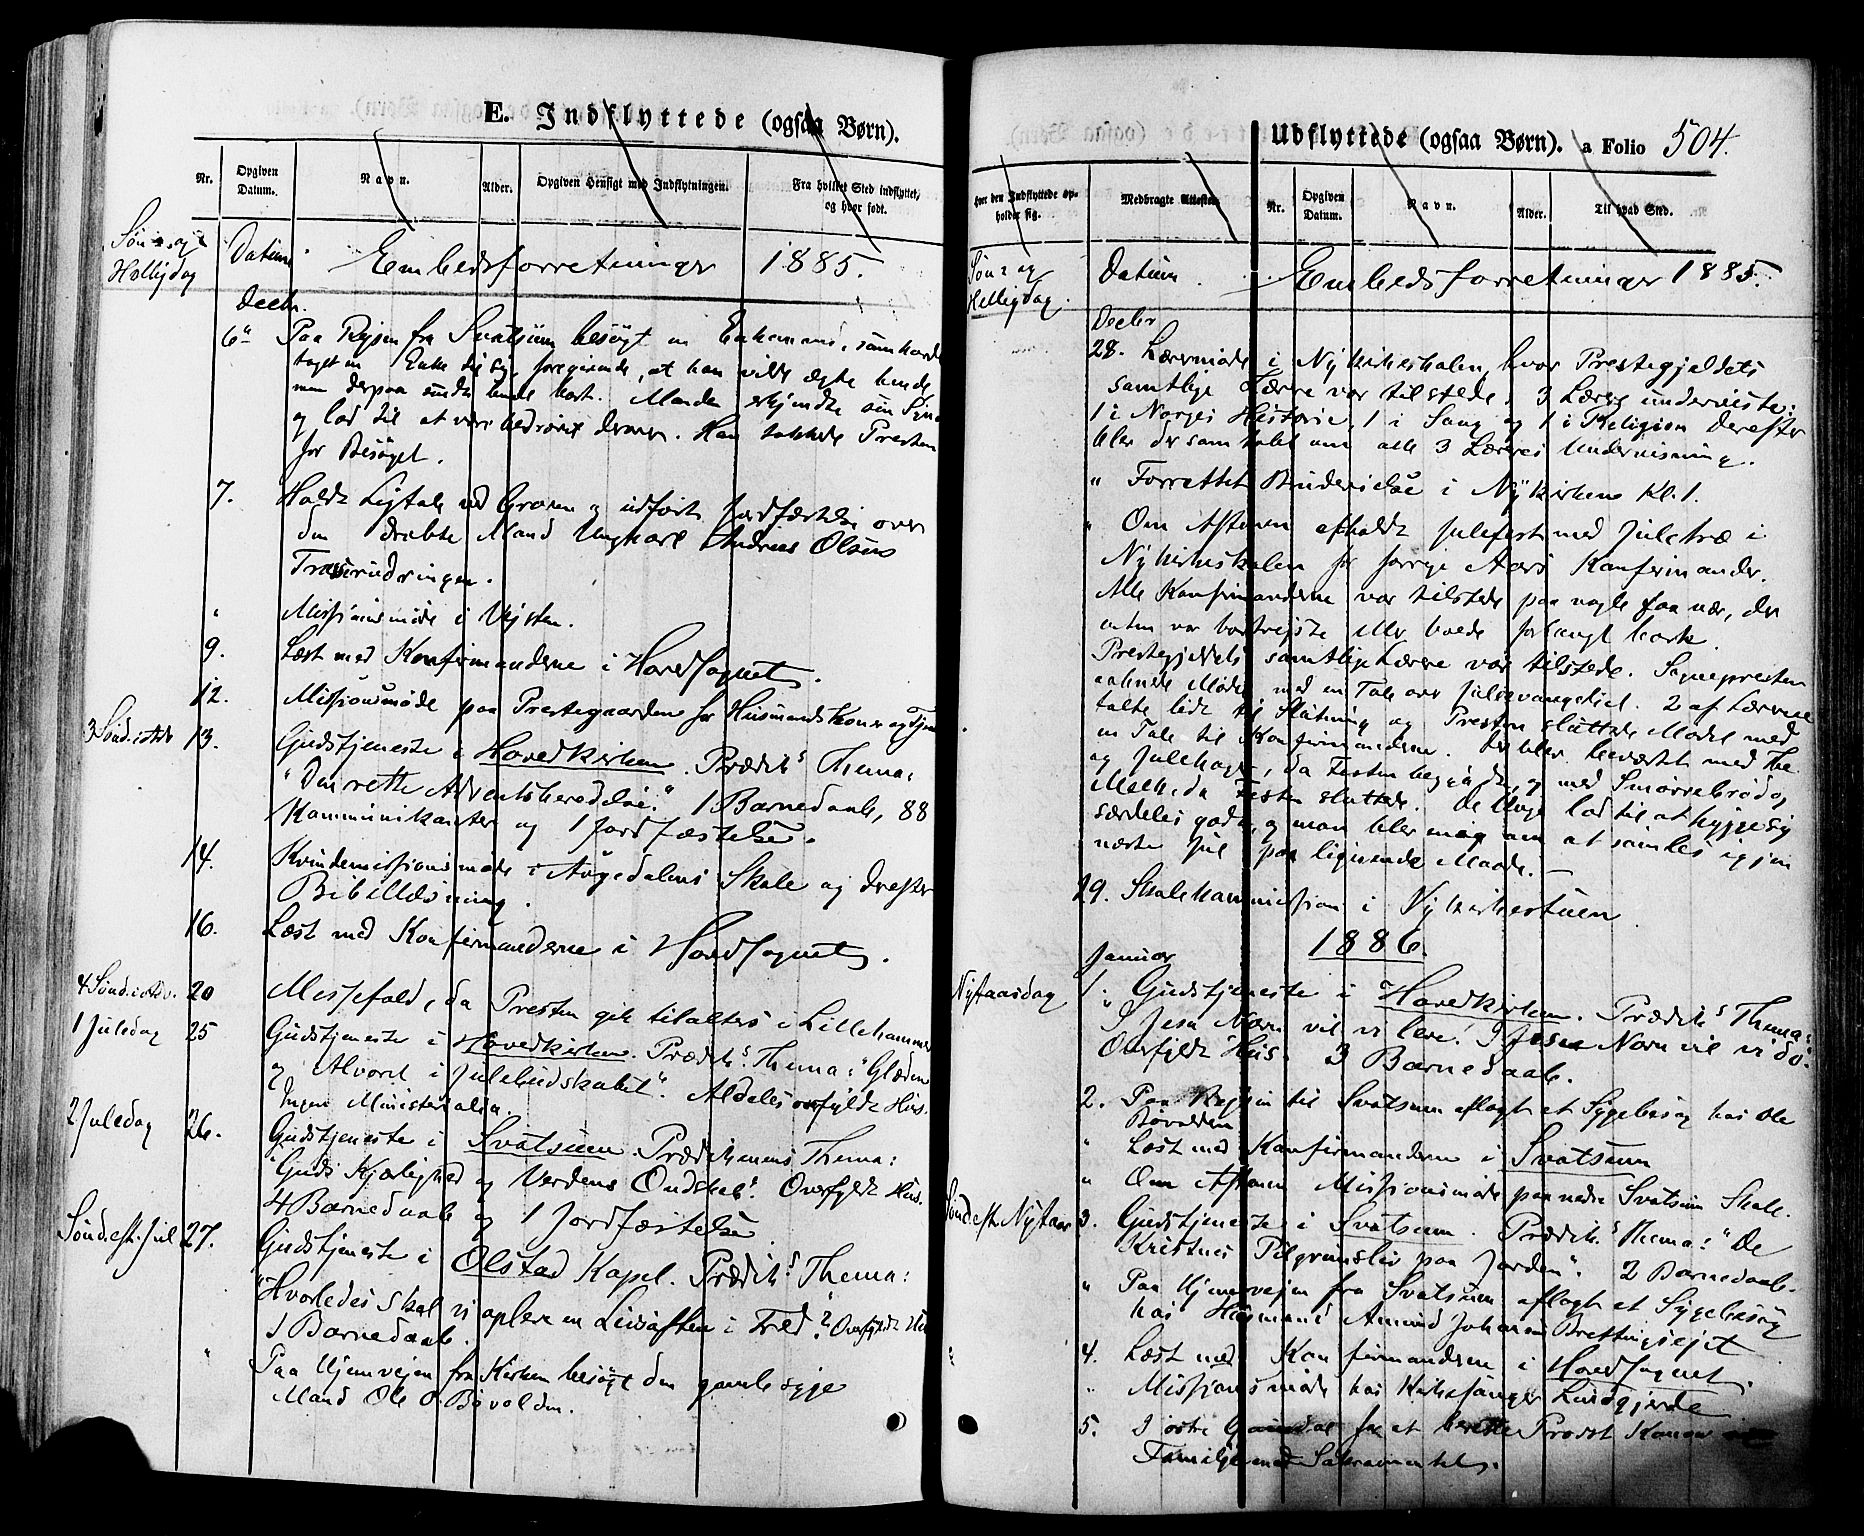 E. Indflyttede (ogsaa Børn).
Nr.
Opgiven Datum.
Navn.
Alder.
Opgiven Hensigt med Indflytningen.
Fra hvilket Sted indflyttet, og hvor født.
Søn- og Helligdag
Datum
Embedsforretninger 1885.
Decbr.
6te Paa Rejsen fra Svatsum besøgt en Enkemand, som havde
taget en Enke til sig, foregivende, at han vilde ægte hende
men derpaa sendte hende bort. Manden erkjendte sin Synd
og lod til at være bedrøvet derover. Han takkede Presten
for Besøget.
7. Holdt Ligtale ved Graven og udført Jordfæstelse over
den dræbte Mand Ungkarl Andreas Olsen
" Missionsmøde i Vejsten.
9. Læst med Konfirmanderne i Hovedsognet.
12. Missionsmøde paa Prestegaarden for Husmands Koner og
3 Sønd. i Adv. 13. Gudstjeneste i Hovedkirken. Prædik.s Thema:
"Den rette Adventsberedelse." 1 Barnedaab, 88
Kommunikanter og 1 Jordfæstelse.
14. Kvindemissionsmøde i Augedalens Skole og derefter
Bibellæsning.
16. Læst med Konfirmanderne i Hovedsognet.
4 Sønd. i Adv. 20 Messefald, da Presten gik tilalters i Lillehammer
1 Juledag 25 Gudstjeneste i Hovedkirken. Prædik.s Thema: "Glæden
og Alvoret i Julebudskabet". Aldeles overfyldt Hus.
Ingen Ministerialia.
2 Juledag 26. Gudstjeneste i Svatsum. Prædikenens Thema:
"Guds Kjærlighed og Verdens Ondskab". Overfyldt Hus.
4 Barnedaab og 1 Jordfæstelse
Sønd. eft. Jul 27. Gudstjeneste i Olstad Kapel. Prædik.s Thema:
"Hvorledes skal vi opleve en Livsaften i Fred?" Overfyldt Hus
1 Barnedaab.
" Paa Hjemvejen fra Kirken besøgt den gamle syge
Mand Ole O. Bøvolden.
Udflyttede (ogsaa Børn). a Folio 504.
Hvor den Indflyttede opholder sig.
Medbragte Attester.
Nr.
Opgiven Datum.
Navn.
Alder.
Til hvad Sted.
Søn- og Helligdag.
Datum.
Embedsforretninger 1885.
Decbr
28. Læremøde i Nykirkeskolen, hvor Prestegjeldets
samtlige Lærere var tilstede. 3 Lærere underviste:
1 i Norges Historie, 1 i Sang og 1 i Religion. Derefter
blev der samtalet om alle 3 Læreres Undervisning.
" Forrettet Brudevielse i Nykirken Kl. 1.
" Om Aftenen afholdt Julefest med Juletræ i
Nykirkeskolen for forrige Aars Konfirmander.
Alle Konfirmanderne var tilstede paa nogle faa nær, der
enten var bortrejste eller boede forlangt bort.
Prestegjeldets samtlige Lærere var tilstede. Sognepresten
aabnede Mødet med en Tale over Juleevangeliet. 2 af Lærerne
talte lidt til Slutning og Presten sluttede Mødet med
en Tale til Konfirmanderne. Der blev beværtet med The
og Julekage, da Festen begyndte, og med Smørrebrød og
Melk da Festen sluttede. De Unge lod til at hygge sig
særdeles godt, og man blev enig om at samles igjen
næste Jul paa lignende Maade. —
29. Skolekommission i Nykirkestuen
1886.
Januar
Nytaarsdag 1. Gudstjeneste i Hovedkirken. Prædik.s Thema:
"I Jesu Navn vil vi leve! I Jesu Navn vil vi dø".
Overfyldt Hus. 3 Barnedaab.
2. Paa Rejsen til Svatsum aflagt et Sygebesøg hos Ole
Bøvolden
" Læst med Konfirmanderne i Svatsum
" Om Aftenen Missionsmøde paa nedre Svatsum Skole.
Sønd. eft. Nytaar 3. Gudstjeneste i Svatsum. Prædik.s Thema: "De
Kristnes Pilgrimsliv paa Jorden". 2 Barnedaab.
" Paa Hjemvejen fra Svatsum aflagt et Sygebesøg
hos Husmand Amund Johansen
4. Læst med Konfirmanderne i Hovedsognet.
" Missionsmøde hos Kirkesanger Lundgjerde
5. I østre Gausdal for at berette Provst Konow
Familje med Sakramentet.